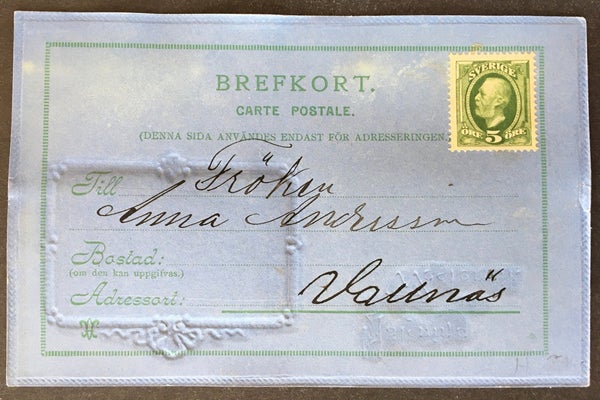 BREFKORT.
CARTE POSTALE.
(DENNA SIDA ANVÄNDES ENDAST FÖR ADRESSERINGEN.
SVERIGE
ÖRE 5 ÖRE
Till Fröken
Anna Andersson
Bostad:
(om den kan uppgifvas.)
Adressort: Vallnäs